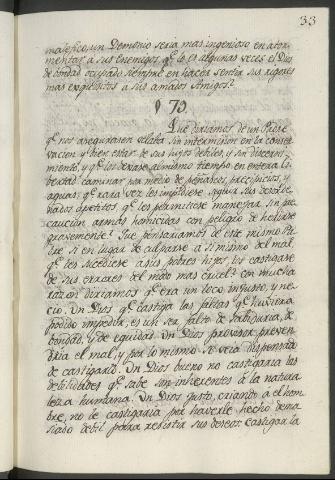 33
malefico: un Demonio seria mas ingenioso en ator-
mentar a sus enemigos, qe. lo es algunas veces el Dios
de bondad ocupado siempre en hacer sentir sus rigores
mas exquisitos a sus amados Amigos?
§ 79.
Que diriamos de un Padre
qe. nos asegurasen velaba sin intermision en la conser-
vacion, y bien estar de sus hijos debiles, y sin discerni-
miento, y qe. los dexase al mismo tiempo en entera li-
bertad caminar por medio de peñascos, precipicios, y
aguas; qe. rara vez les impidiese seguir sus desorde-
nados apetitos; qe. les permitiese manejar, sin pre-
caucion, armas homicidas con peligro de herirse
gravemente? Que pensariamos de este mismo Pa-
dre, si en lugar de culparse a si mismo del mal,
qe. les sucediese a sus pobres hijos, los castigase
de sus errores del modo mas cruel? con mucha
razon diriamos qe. era un loco injusto, y ne-
cio. Un Dios qe. castiga las faltas qe. huviera
podido impedir, es un ser falto de sabiduria, de
bondad, y de equidad. Un Dios provisor, preven-
dria el mal, y por lo mismo se veria dispensado
de castigarlo. Un Dios bueno no castigaria las
debilidades qe. sabe son inherentes a la natura-
leza humana. Un Dios justo, criando a el hom-
bre, no le castigaria por haverle hecho dema-
siado debil para resistir sus deseos: castigar la